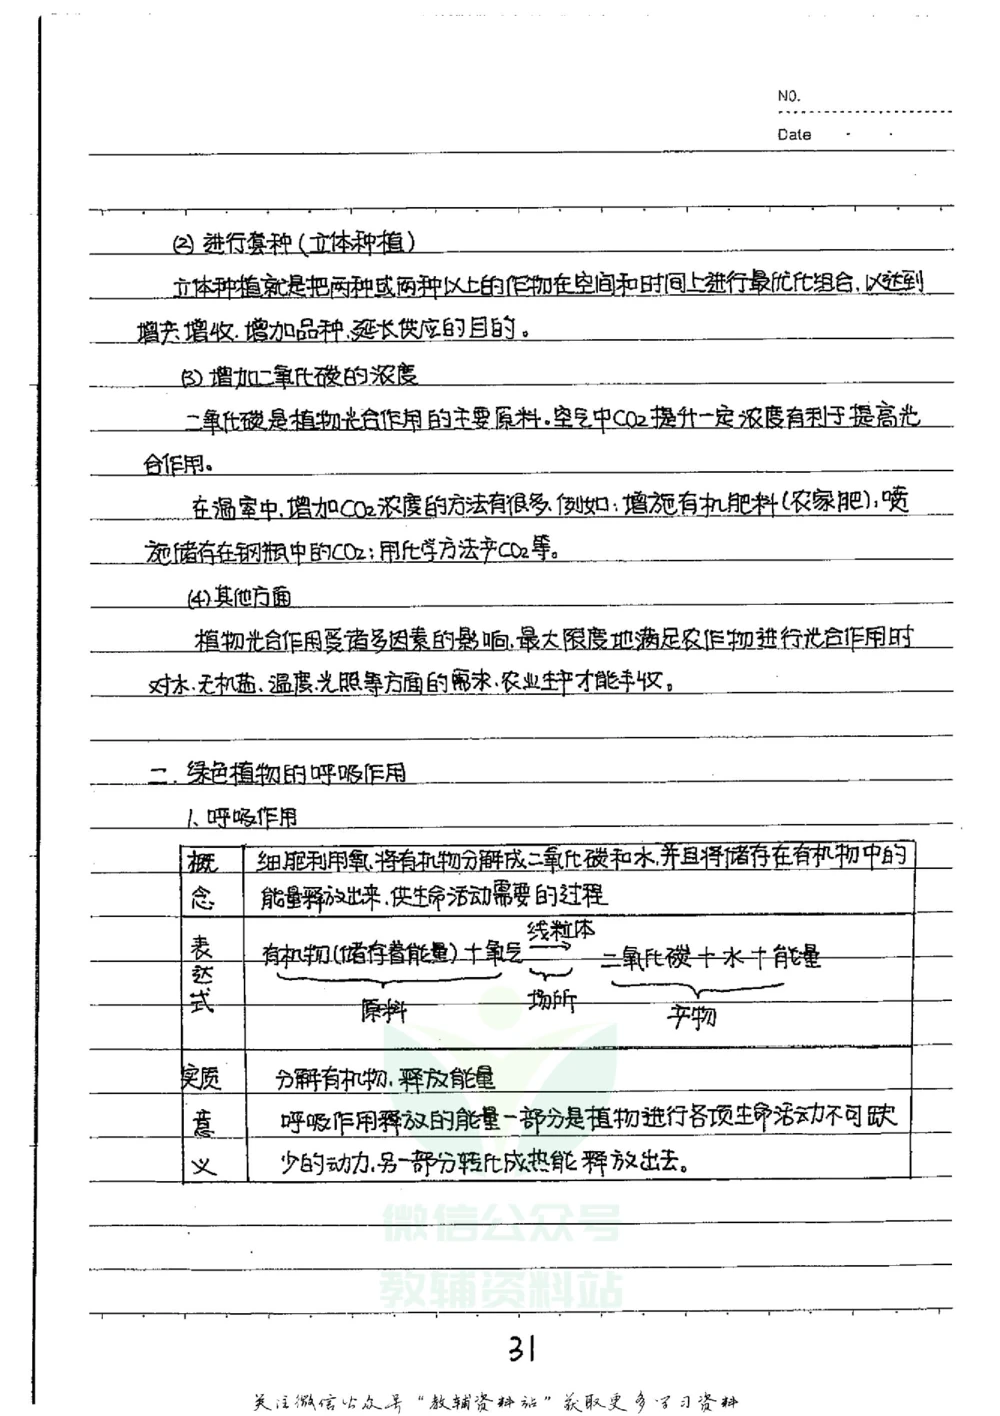 NO.
Date
(2) 进行套种(立体种植)
立体种植就是把两种或两种以上的作物在空间和时间上进行最优化组合,以达到
增产、增收、增加品种、延长供应的目的。
(3) 增加二氧化碳的浓度
二氧化碳是植物光合作用的主要原料。空气中CO2提升一定浓度有利于提高光
合作用。
在温室中,增加CO2浓度的方法有很多,例如:增施有机肥料(农家肥);喷
施储存在钢瓶中的CO2;用化学方法产CO2等。
(4)其他方面
植物光合作用受诸多因素的影响,最大限度地满足农作物进行光合作用时
对水、无机盐、温度、光照等方面的需求,农业生产才能丰收。
二、绿色植物的呼吸作用
1、呼吸作用
概念 细胞利用氧,将有机物分解成二氧化碳和水,并且将储存在有机物中的
能量释放出来,供生命活动需要的过程
表达式 有机物(储存着能量)+氧气 线粒体→ 二氧化碳+水+能量
原料 场所 产物
实质 分解有机物,释放能量
意义 呼吸作用释放的能量一部分是植物进行各项生命活动不可缺
少的动力,另一部分转化成热能释放出去。
微信公众号
教辅资料站
31
关注微信公众号“教辅资料站”获取更多学习资料